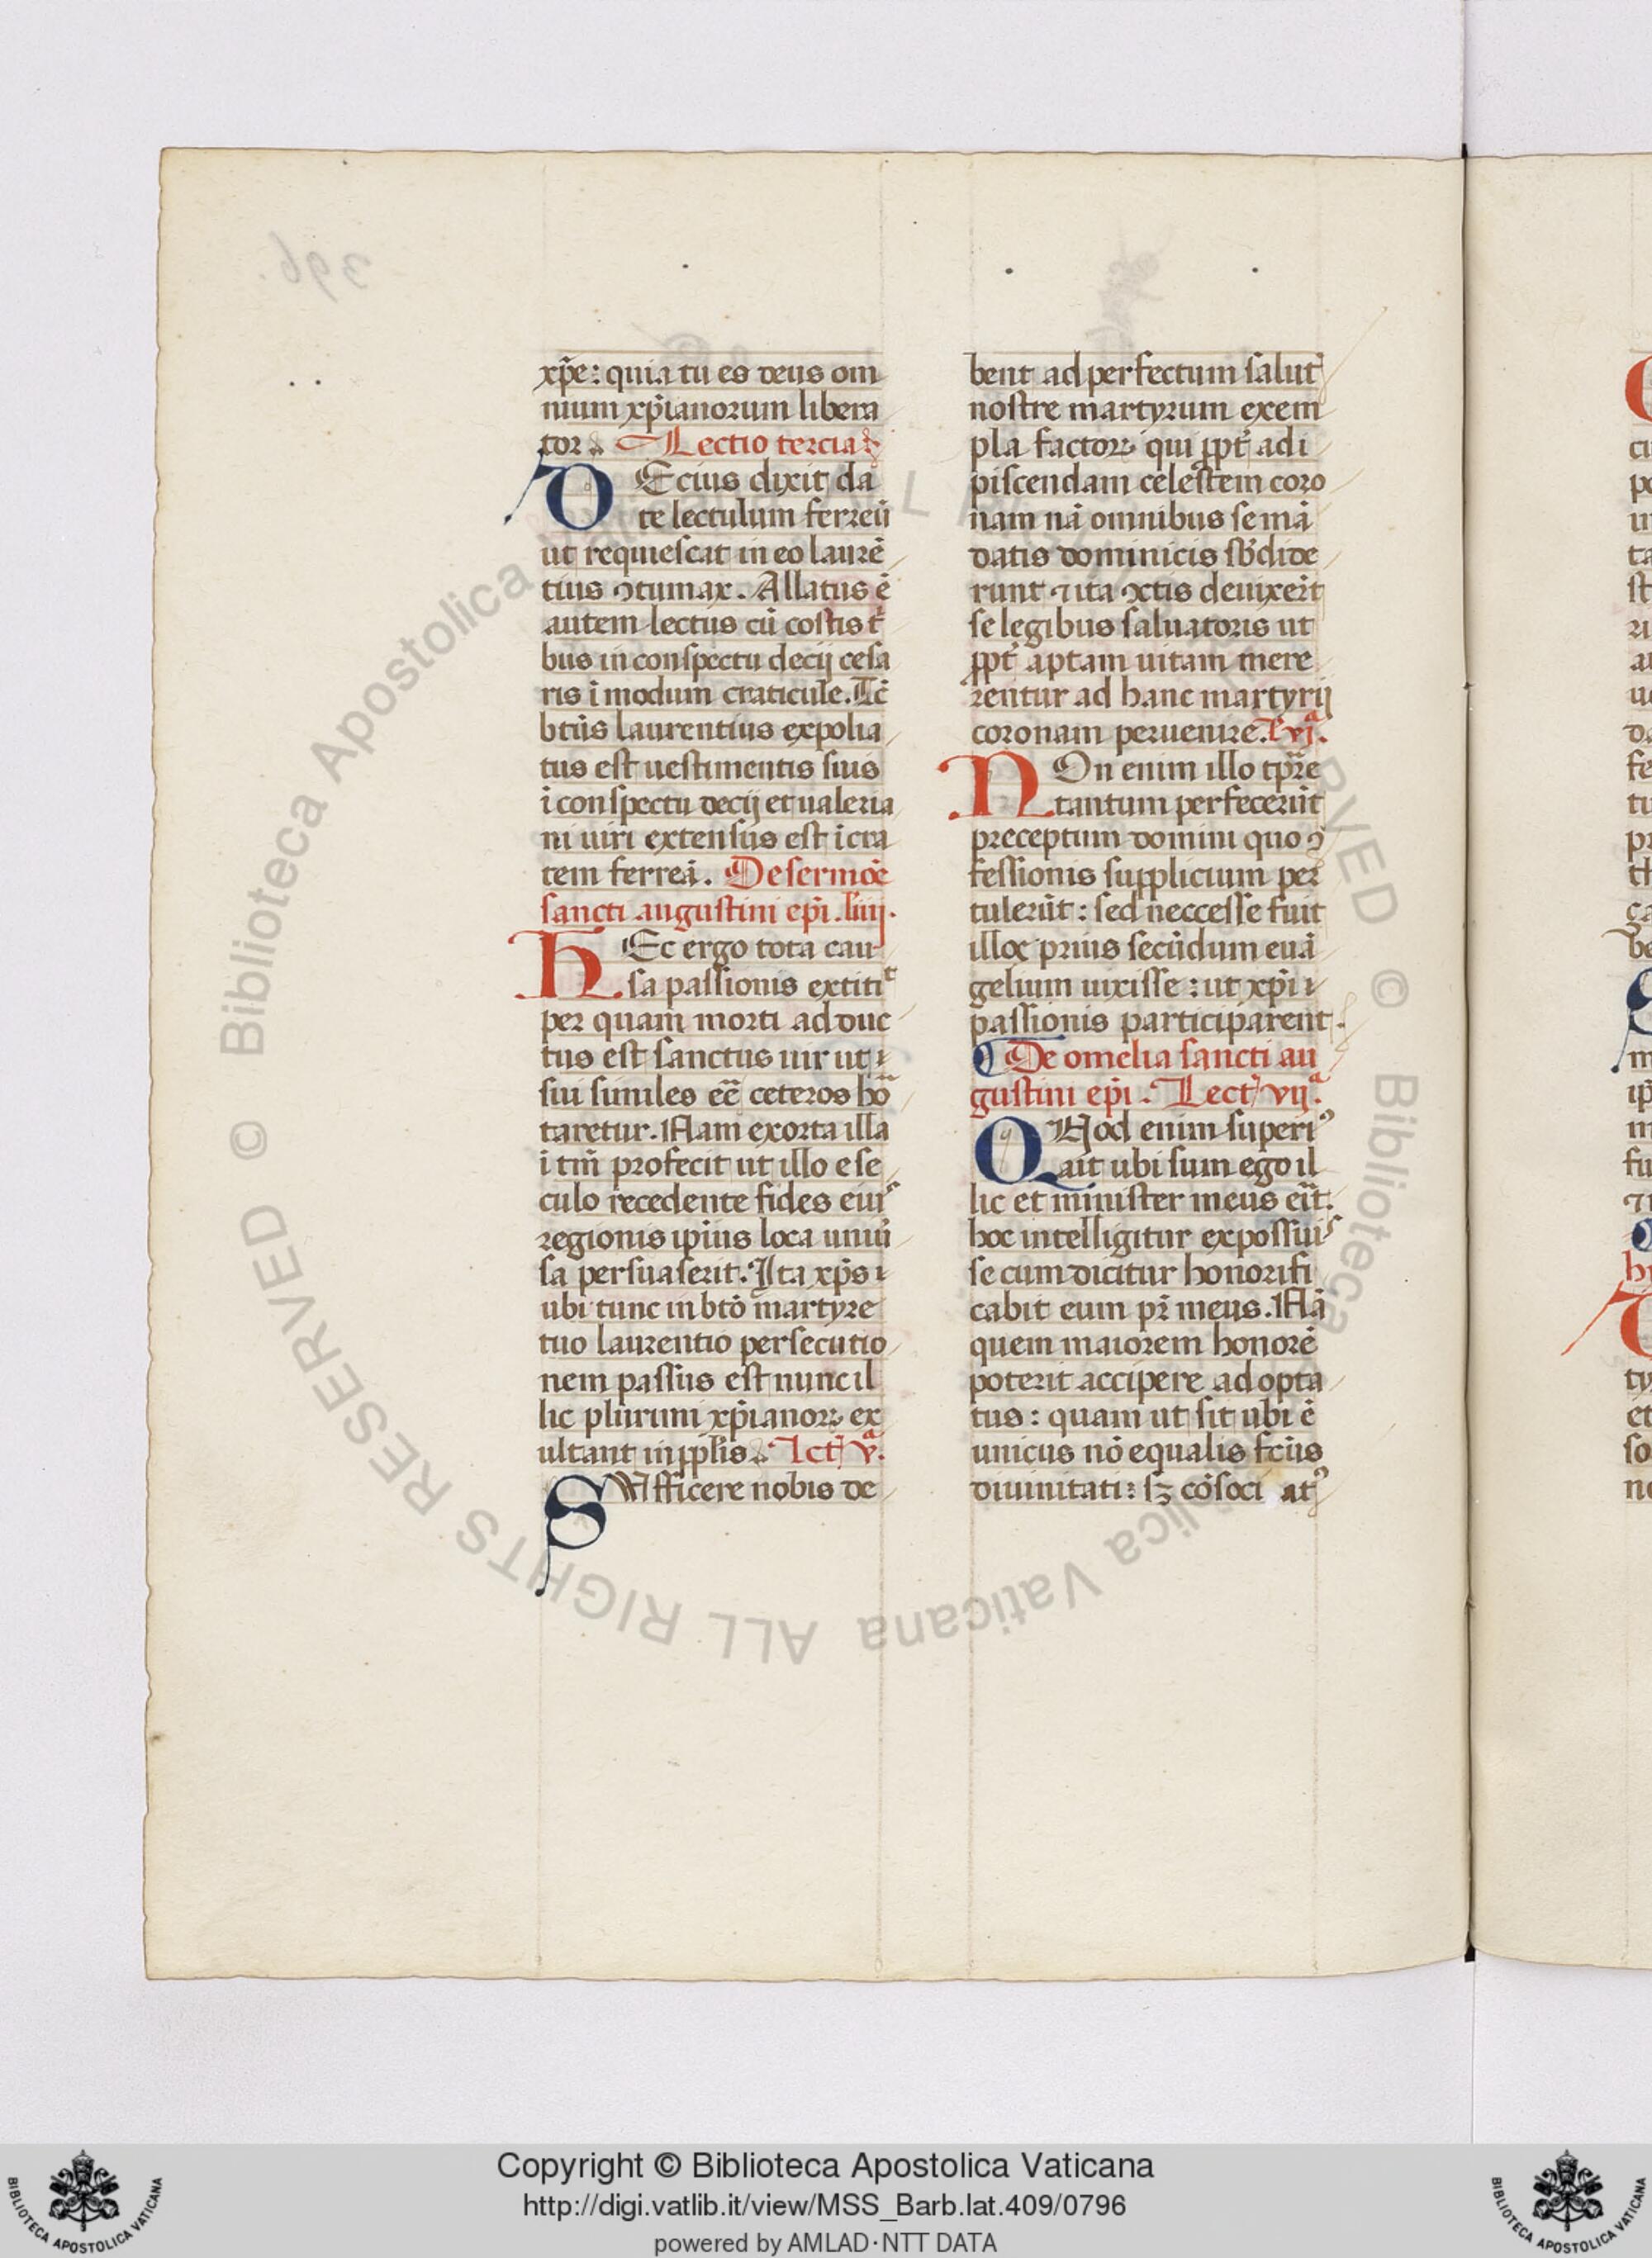 xp̄e: quia tu es deus om
nium xp̄ianorum libera
tor. Lectio tercia
DEcius dixit da
te lectulum ferreū
ut requiescat in eo laurē
tius ꝯtumax. Allatus ē
autem lectus cū costis t̄
bus in conspectu decij cesa
ris ī modum craticule. Tc̄
btūs laurentius expolia
tus est uestimentis suis
ī conspectu decij et ualeria
ni uiri extensus est ī cra
tem ferreā. De sermōe
sancti augustini ep̄i. liiij.
HEc ergo tota cau
sa passionis extitit
per quam morti ad duc
tus est sanctus uir ut
sui similes eē ceteros ho
taretur. Nam exorta illa
ī tm̄ profecit ut illo e se
culo recedente fides eius
regionis ipīus loca uniū
sa persuaserit. Ita xp̄s
ubi tunc in btō martyre
tuo laurentio persecutio
nem passus est nunc il
lic plurimi xp̄ianoꝝ ex
ultant in pplīs. lct v.ª
SUfficere nobis de
bent ad perfectum salut
nostre martyrum exem
pla factoꝝ qui ppt̄ adi
piscendam celestem coro
nam nā omnibus se mā
datis dominicis sb̄dide
runt ⁊ ita ꝯctis deuixer̄t
se legibus saluatoris ut
ppt̄ aptam uitam mere
rentur ad hanc martyrij
coronam peruenire. l vj.ª
NOn enim illo tp̄re
tantum perfecerūt
preceptum domini quo ꝯ
fessionis supplicium per
tulerūt: sed neccesse fuit
illoc prius secūdum euā
gelium uixisse: ut xp̄i
passionis participarent.
De omelia sancti au
gustini ep̄i. Lect vij.ª
QUod enim superiꝰ
ait ubi sum ego il
lic et minister meus erit.
hoc intelligitur expossuis
se cum dicitur honorifi
cabit eum pr̄ meus. Nā
quem maiorem honorē
poterit accipere adopta
tus: quam ut sit ubi ē
unicus nō equalis fcūs
diuinitati: sꝫ cōsoci at
Copyright © Biblioteca Apostolica Vaticana
http://digi.vatlib.it/view/MSS_Barb.lat.409/0796
powered by AMLAD·NTT DATA